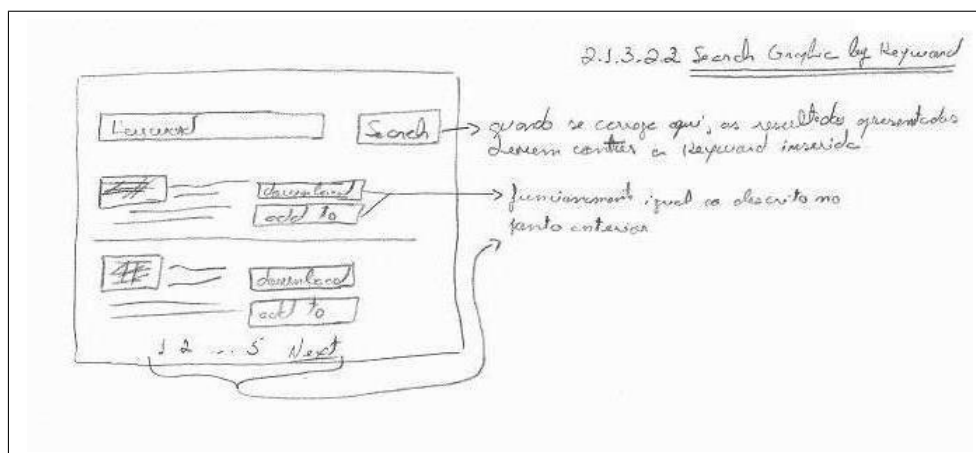 2.1.3.2.2 Search Graphic by Keyword
Search
quando se carrega aqui, os resultados apresentados
devem conter a Keyword inserida
download
add to
funcionamento igual ao descrito no
ponto anterior
download
add to
1 2 ... 5 Next